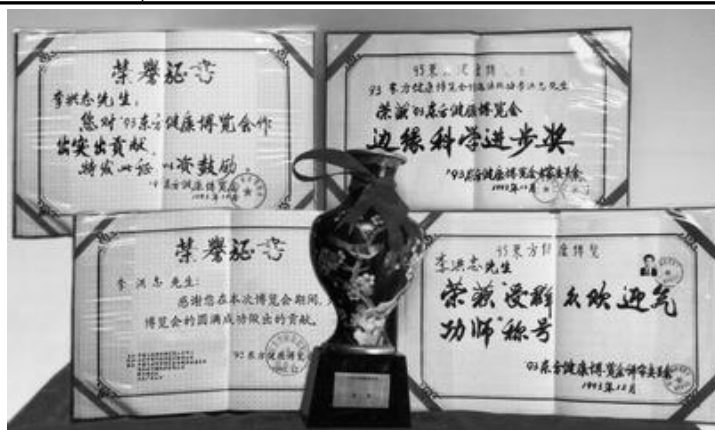 荣誉证书
李洪志先生，
您对'93东方健康博览会作
出突出贡献，
特发此证 以资鼓励。
东方健康博览会
1993年12月
93东方健康博览会
李洪志先生
荣获'93东方健康博览会
边缘科学进步奖
'93东方健康博览会
1993年12月
荣誉证书
李洪志先生：
感谢您在本次博览会期间，
博览会的圆满成功做出的贡献。
'92东方健康博览会
93东方健康博览
李洪志先生
荣获"受群众欢迎气
功师"称号
93东方健康博览会评审委员会
1993年12月